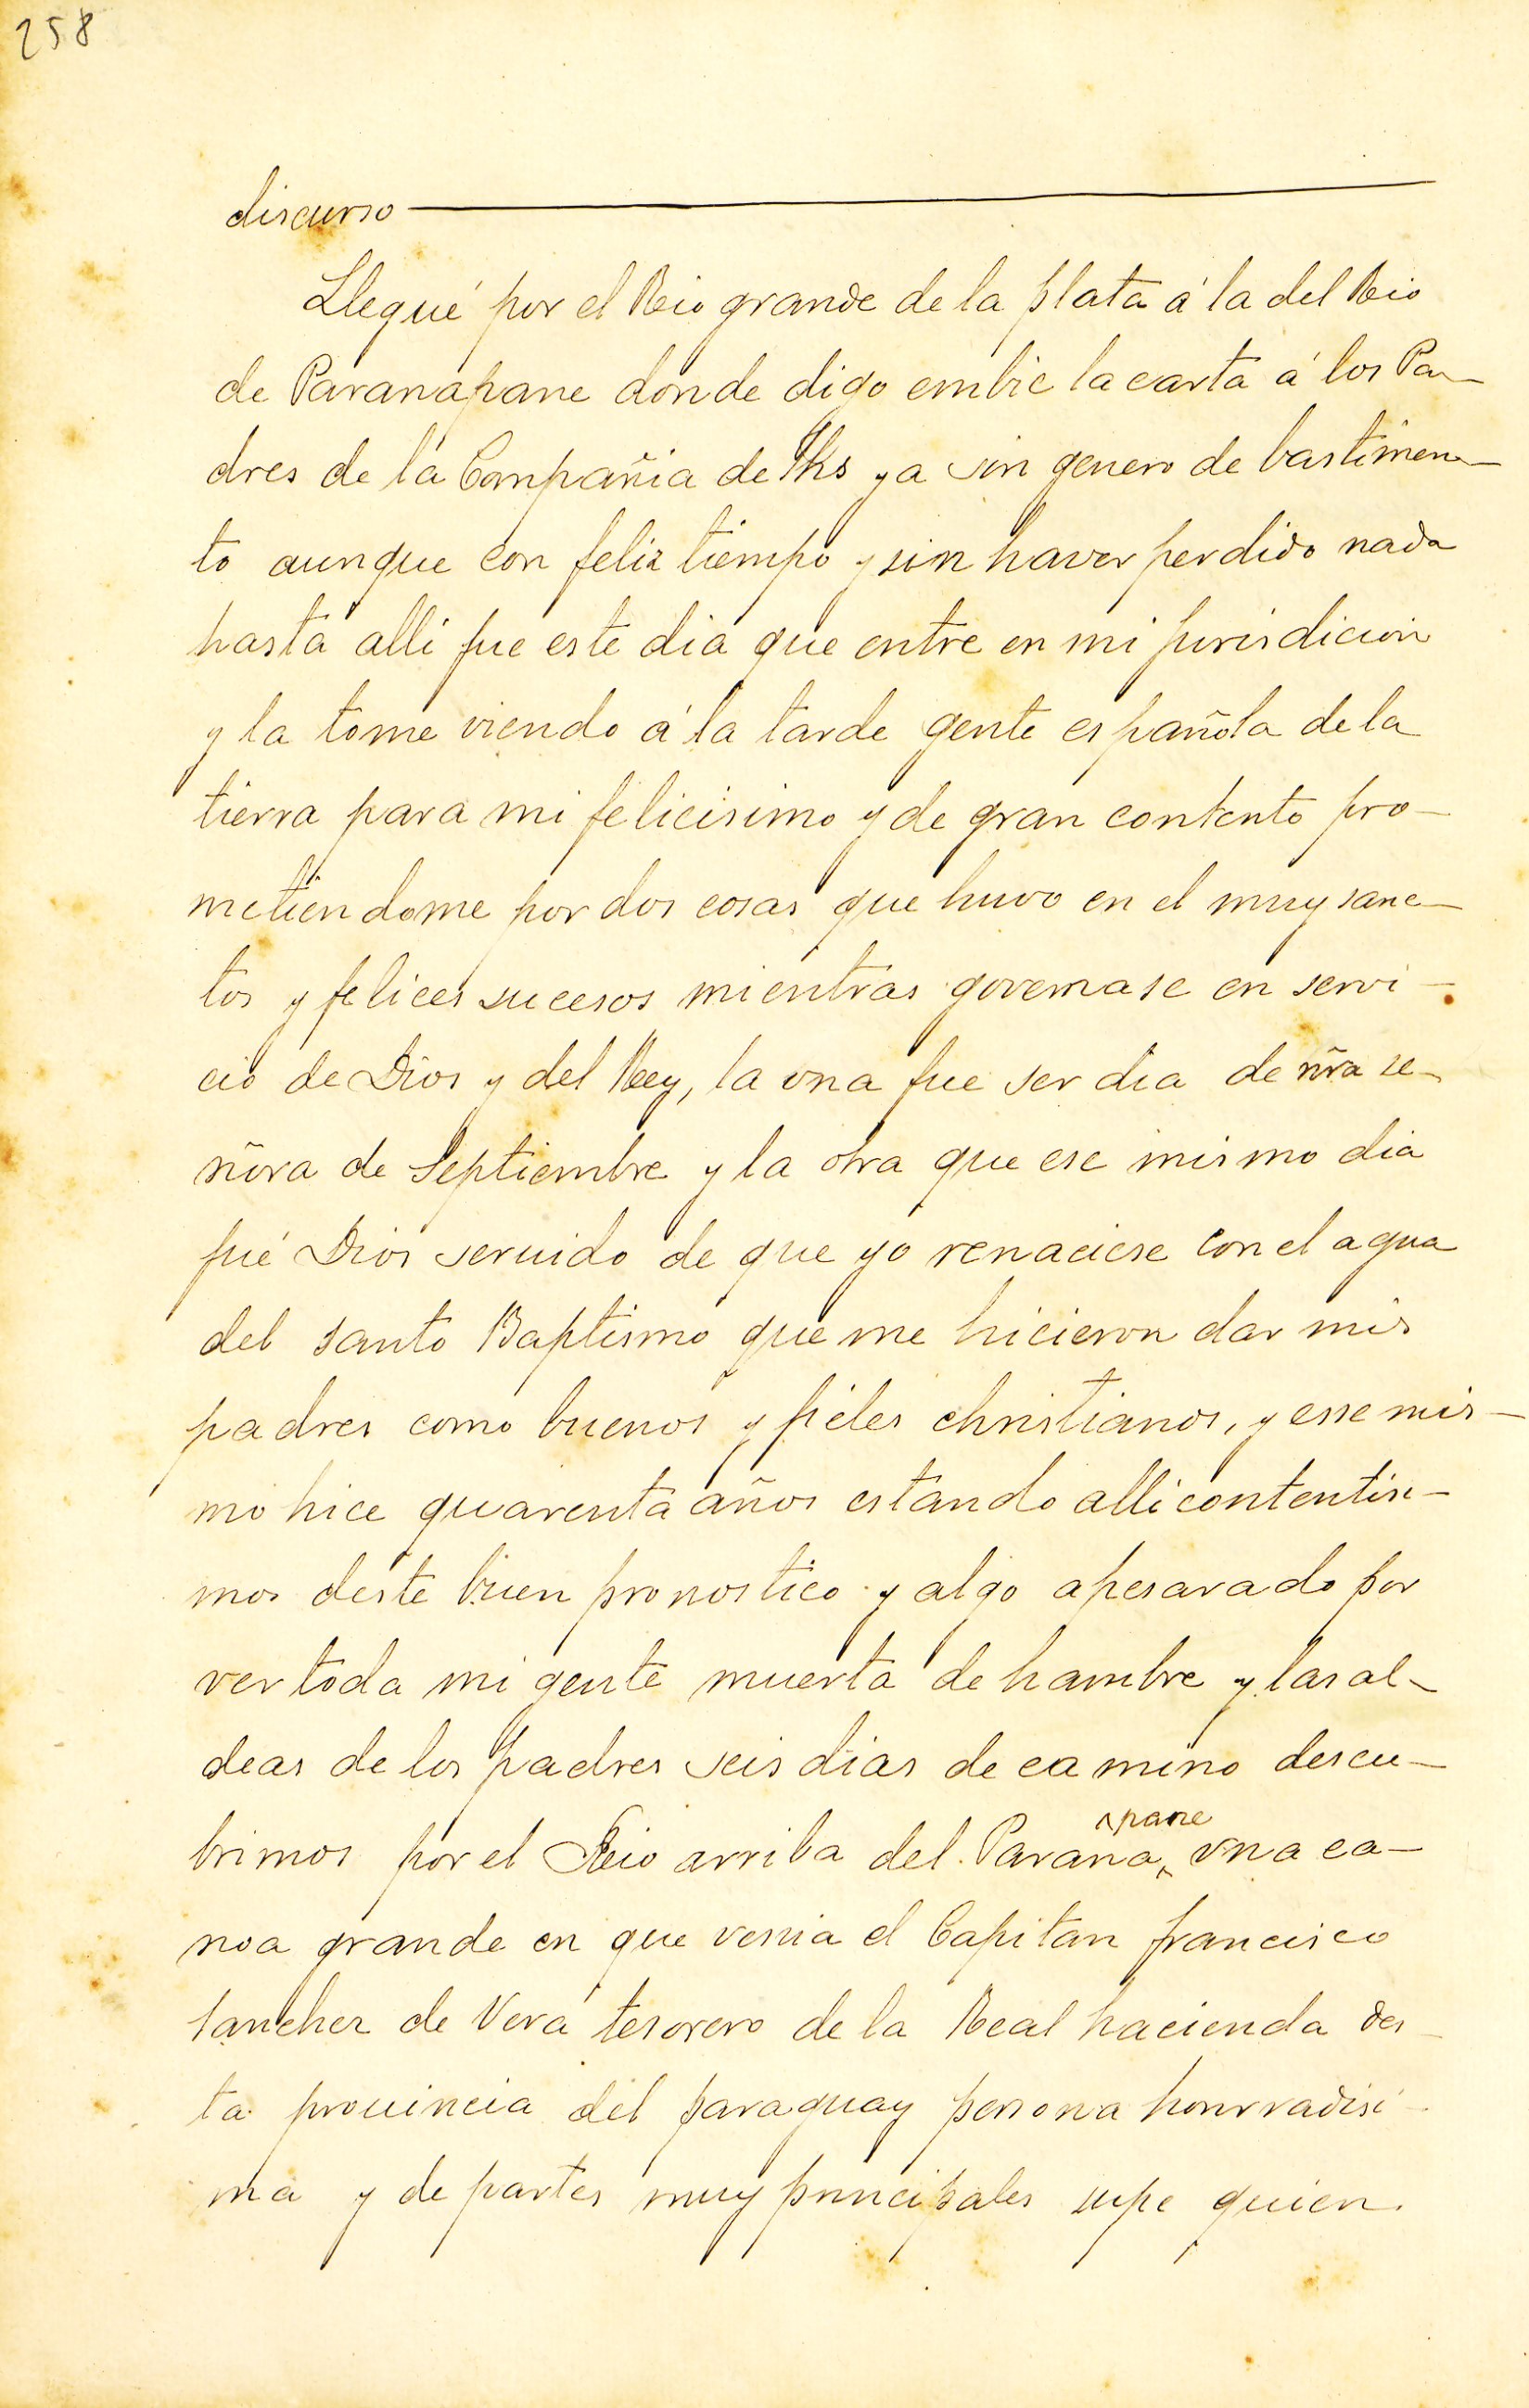 258
discurso
Llegué por el Rio grande de la plata á la del Rio
de Paranapane donde digo embie la carta á los Pa-
dres de la Compañia de Ihs ya sin genero de bastimen-
to aunque con feliz tiempo y sin haver perdido nada
hasta alli fue este dia que entre en mi jurisdicion
y la tome viendo á la tarde gente española de la
tierra para mi felicisimo y de gran contento pro-
metiendome por dos cosas que huvo en el muy sanc-
tos y felices sucesos mientras governase en servi-
cio de Dios y del Rey, la una fue ser dia de nr̃a se-
ñora de Septiembre y la otra que ese mismo dia
fué Dios seruido de que yo renaciese con el agua
del santo Baptismo que me hicieron dar mis
padres como buenos y fieles christianos, y esse mis-
mo hice quarenta años estando alli contentisi-
mos deste buen pronostico y algo apesarado por
ver toda mi gente muerta de hambre y las al-
deas de los padres seis dias de camino descu-
brimos por el Rio arriba del Paranapane una ca-
noa grande en que venia el Capitan francisco
sanchez de Vera tesorero de la Real hacienda des-
ta prouincia del paraguay persona honrradisi-
ma y de partes muy principales supe quien